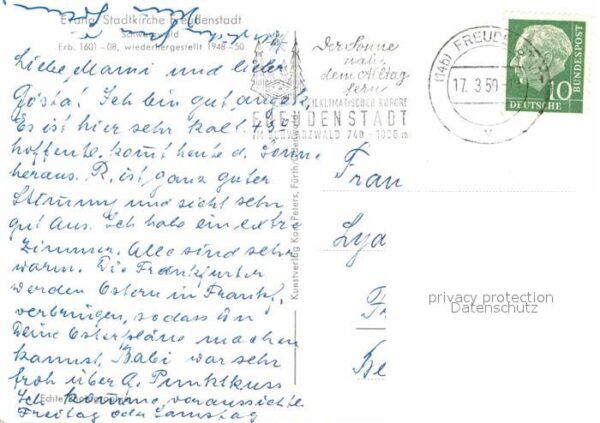 Evang. Stadtkirche Freudenstadt
Schwarzwald
Erb. 1601-08, wiederhergestellt 1948-50
Liebe Mami und lieber
Gösta! Ich bin gut
Es ist hier sehr kalt + so
hoffentl. kommt heute d. Sonne
heraus. R. ist ganz guter
Stimmung und sieht sehr
gut aus. Ich habe ein extra
Zimmer. Alle sind sehr
warm. Die Frankfurter
werden Ostern in Frankf.
verbringen, sodass Du
Deine Osterpläne machen
kannst. Babi war sehr
froh über A. Punktkuss
Ich komme voraussichtl.
Freitag oder Samstag
Echte
Kunstverlag Peters, Fürth/
Der Sonne
nah,
dem Alltag
fern
HEILKLIMATISCHER KURORT
FREUDENSTADT
IM SCHWARZWALD 740-1000 m
(14b) FREUDEN
17. 3. 59
v
10
DEUTSCHE
BUNDESPOST
Frau
Lya
Fr
privacy protection
Datenschutz